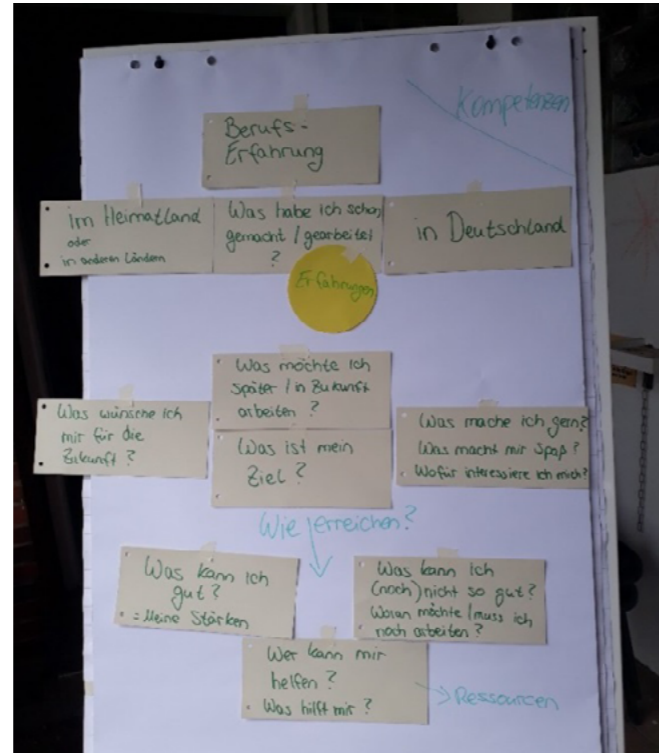 Kompetenzen
Berufs-
Erfahrung
im Heimatland
oder
in anderen Ländern
Was habe ich schon
gemacht / gearbeitet
?
in Deutschland
Erfahrungen
Was möchte ich
später / in Zukunft
arbeiten ?
Was wünsche ich
mir für die
Zukunft ?
Was ist mein
Ziel ?
Was mache ich gern?
Was macht mir Spaß ?
Wofür interessiere ich mich?
Wie erreichen?
Was kann ich
gut ?
= Meine Stärken
Was kann ich
(noch) nicht so gut ?
Woran möchte / muss ich
noch arbeiten ?
Wer kann mir
helfen ?
Was hilft mir ?
Ressourcen